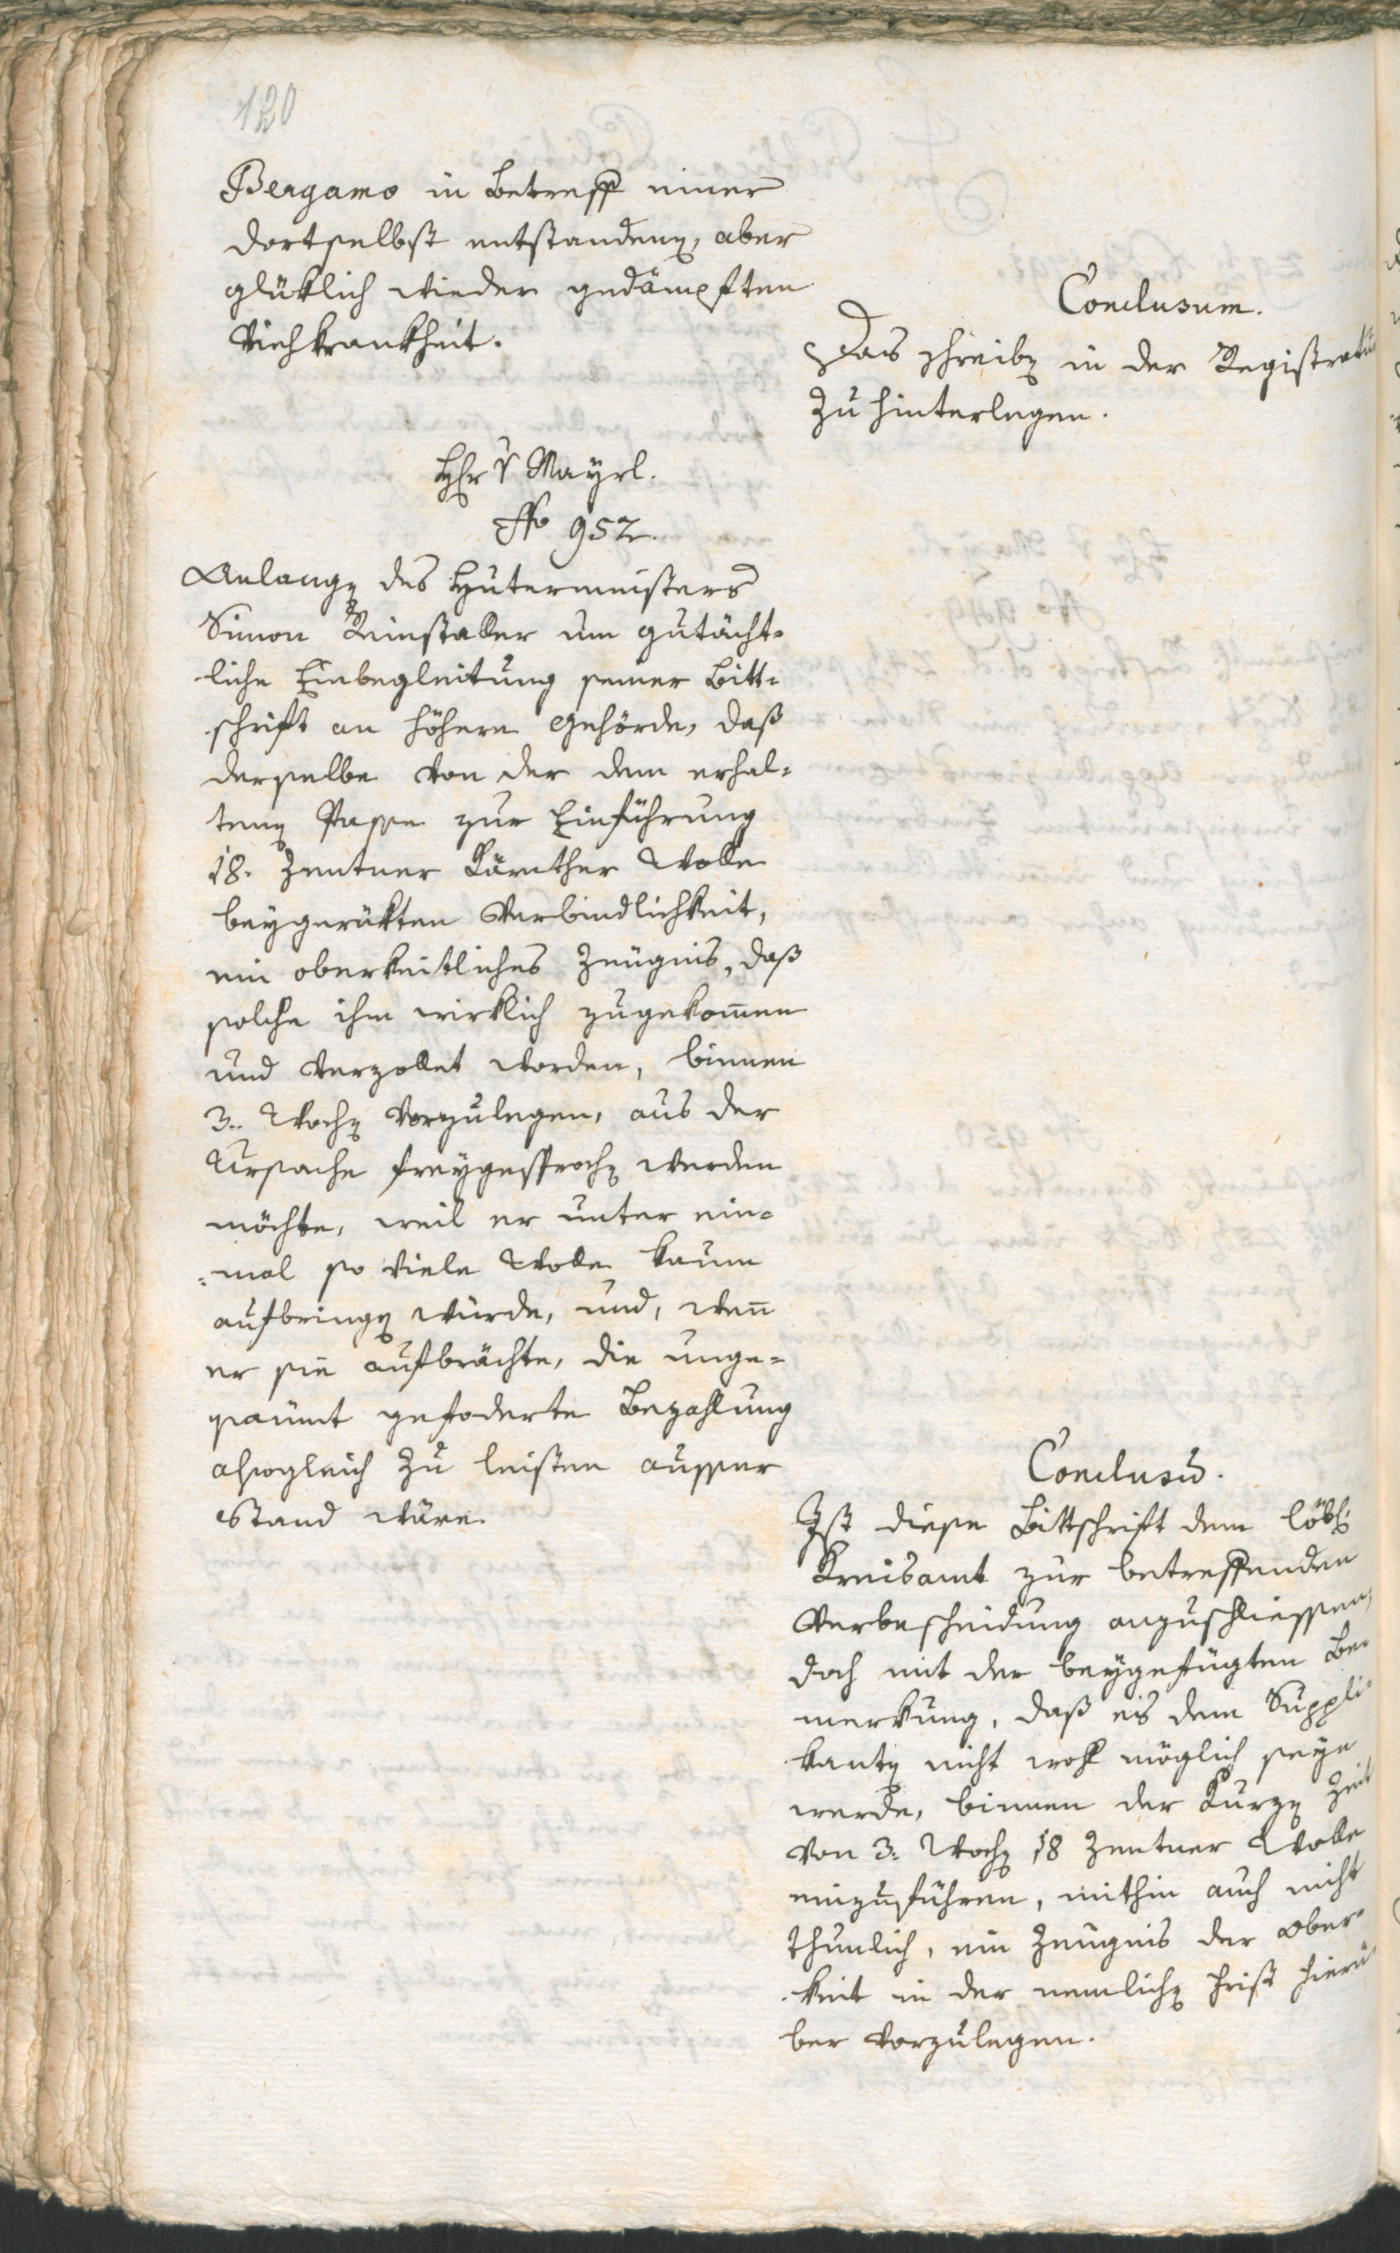 120
Bergamo in Betreff einer
dortselbst entstandenen, aber
glüklich wieder gedämpften
Viehkrankheit.
Conclusum.
Das Schreiben in der Registratur
zu hinterlegen.
Hr. v Mayrl.
No 952.
Anlangen des Hutermeisters
Simon Reinstaller um gutächt-
liche Einbegleitung seiner Bitt-
schrift an höhere Gehörde, daß
derselbe von der dem erhal-
tenen Passe zur Einführung
18. Zentner Kärnther Wolle
beygerükten Verbindlichkeit,
ein oberkeitliches Zeugnis, daß
solche ihm wirklich zugekommen
und verzollet worden, binnen
3. Wochen vorzulegen, aus der
Ursache freygesprochen werden
möchte, weil er unter ein-
-mal so viele Wolle kaum
aufbringen würde, und, wenn
er sie aufbrächte, die unge-
säumt gefoderte Bezahlung
alsogleich zu leisten ausser
Stand wäre.
Conclusum.
Ist diese Bittschrift dem löbl:
Kreisamt zur betreffenden
Verbescheidung anzuschliessen,
doch mit der beygefügten Be-
merkung, daß es dem Suppli-
kanten nicht wohl möglich seyn
werde, binnen der kurzen Zeit
von 3. Wochen 18 Zentner Wolle
einzuführen, mithin auch nicht
thunlich, ein Zeugnis der Ober-
keit in der nemlichen Frist hierü-
ber vorzulegen.